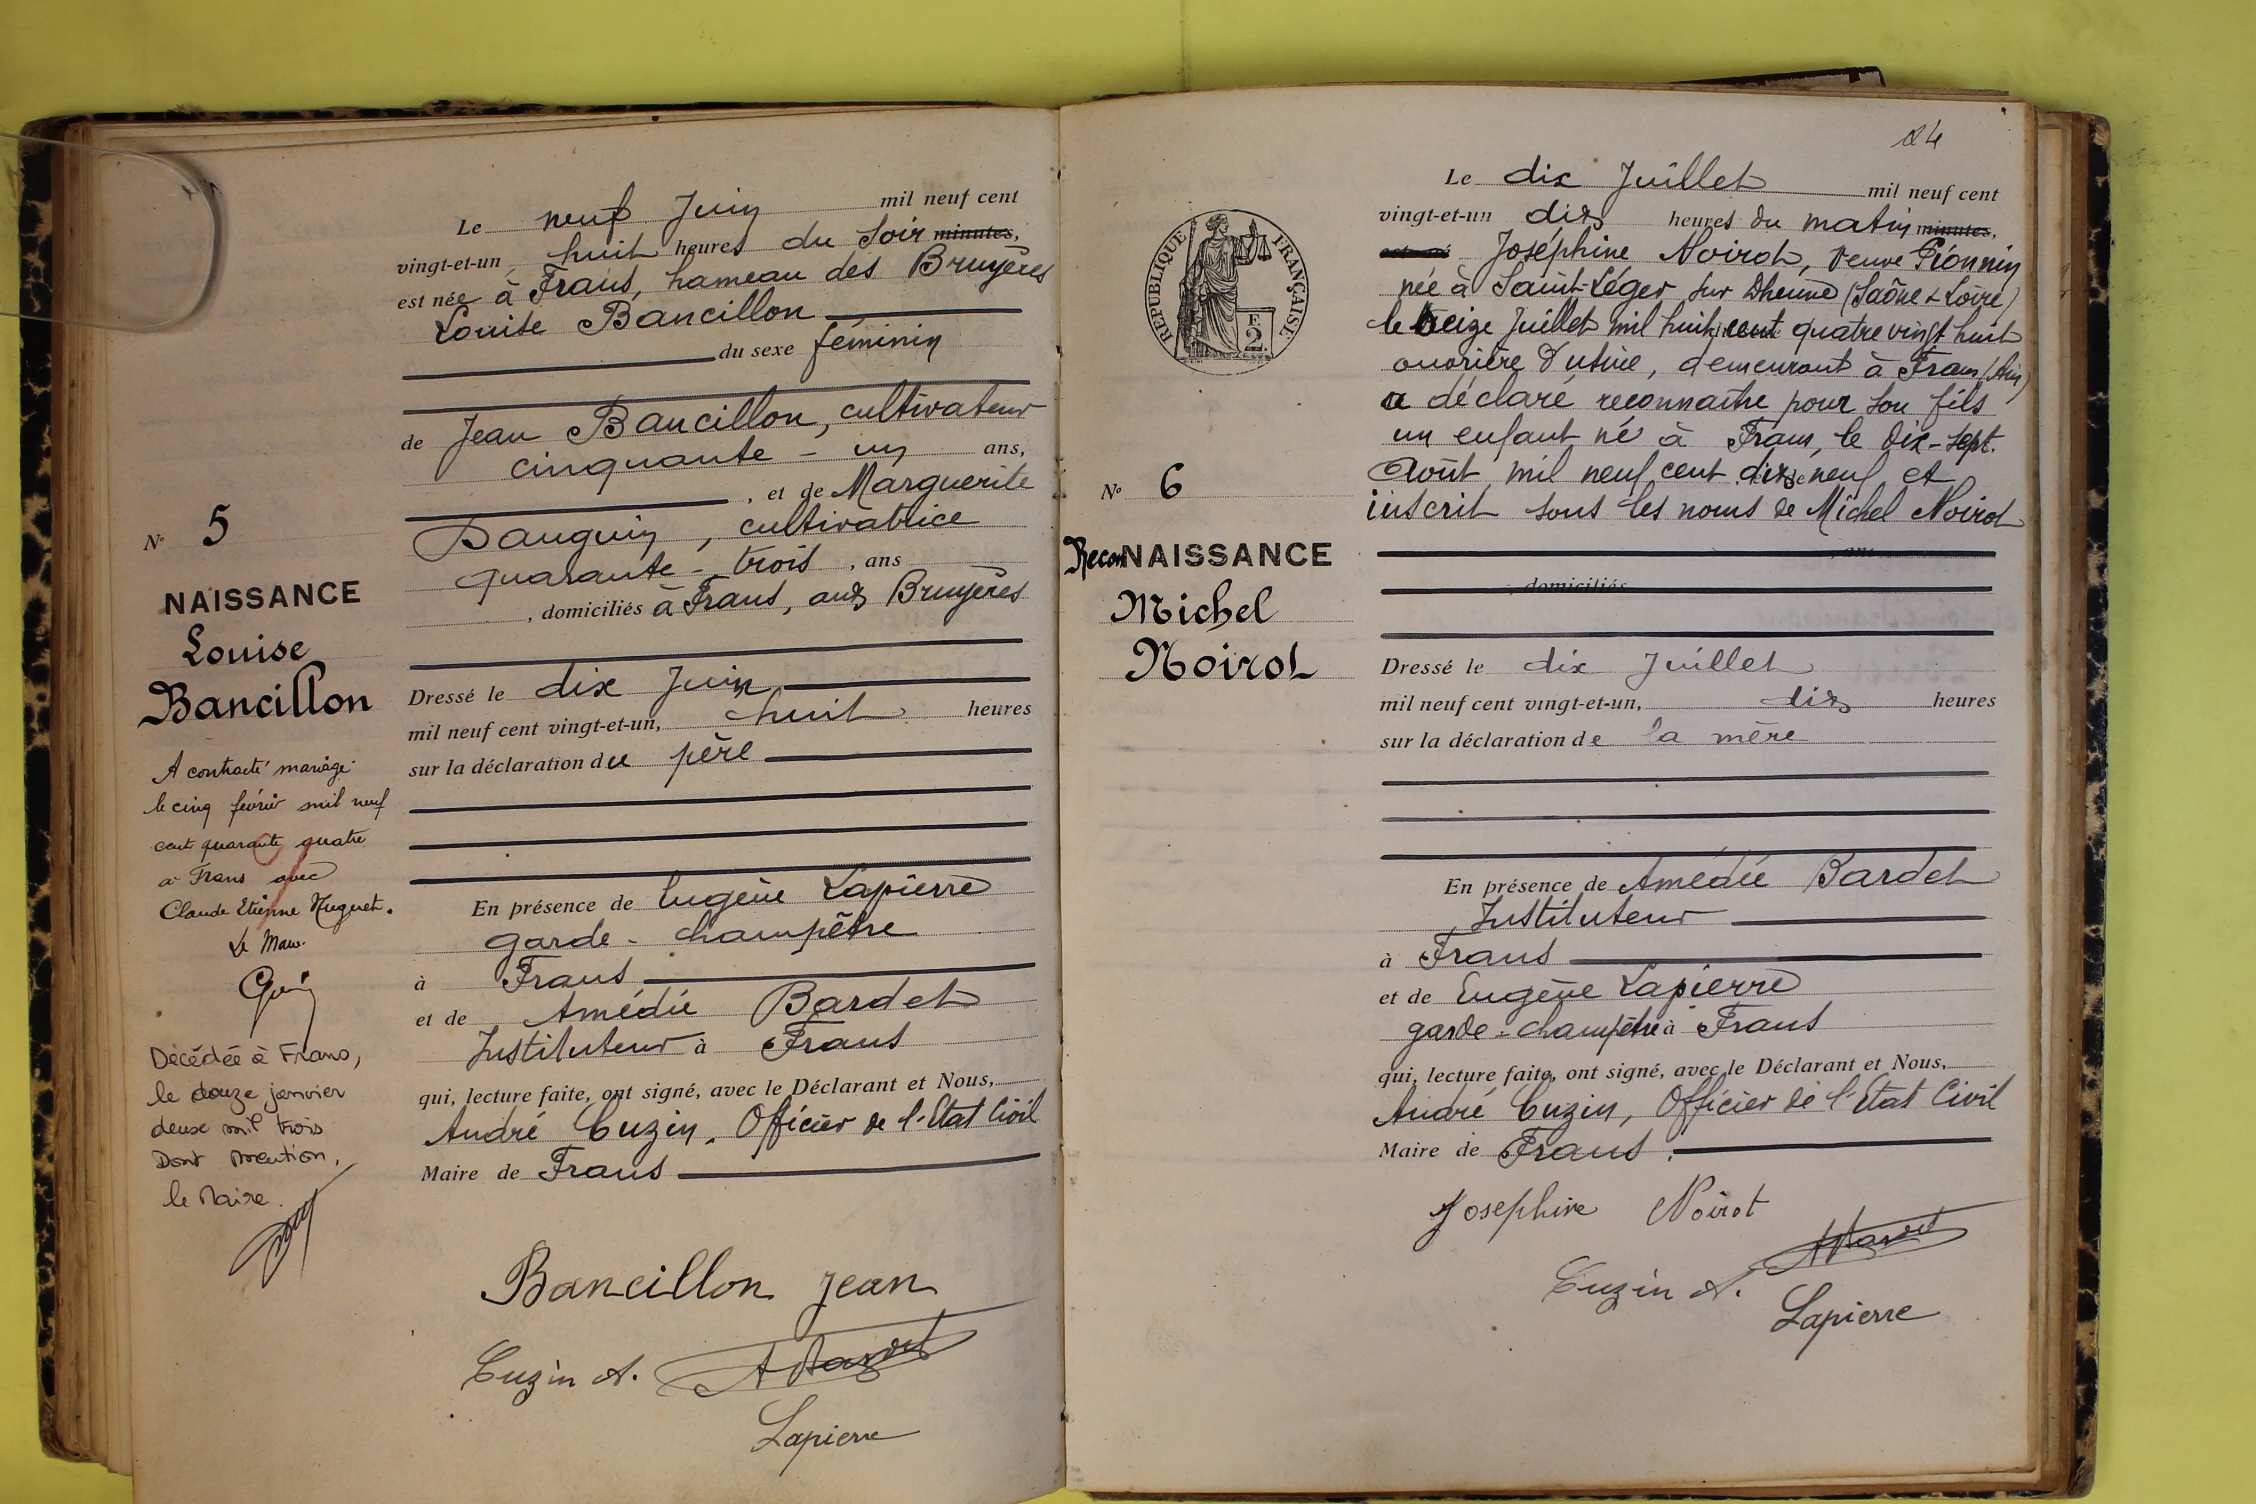 Le neuf Juin mil neuf cent
vingt-et-un, huit heures du soir minutes,
est née à Frans, hameau des Bruyères
Louise Bancillon
du sexe féminin
de Jean Bancillon, cultivateur
cinquante-un ans,
, et de Marguerite
Dauguin, cultivatrice
quarante-trois, ans
, domiciliés à Frans, aux Bruyères
Dressé le dix Juin
mil neuf cent vingt-et-un, huit heures
sur la déclaration du père
En présence de Eugène Lapierre
garde-champêtre
à Frans
et de Amédée Bardet
Instituteur à Frans
qui, lecture faite, ont signé, avec le Déclarant et Nous,
André Cuzin, Officier de l'Etat Civil
Maire de Frans
Bancillon Jean
Cuzin A. A Bardet
Lapierre
N° 5
NAISSANCE
Louise
Bancillon
A contracté mariage
le cinq février mil neuf
cent quarante quatre
à Frans avec
Claude Etienne Huguet.
Le Maire
Décédée à Frans,
le douze janvier
deux mil trois
Dont mention,
le Maire.
24
RÉPUBLIQUE FRANÇAISE
2
F
Le dix Juillet mil neuf cent
vingt-et-un dix heures du matin minutes,
Joséphine Noirot, veuve Pionnin
née à Saint-Léger sur Dheune (Saône & Loire)
le treize Juillet mil huit cent quatre vingt huit
ouvrière d'usine, demeurant à Frans (Ain)
a déclaré reconnaître pour son fils
un enfant né à Frans, le dix-sept
Août mil neuf cent dix neuf et
inscrit sous les noms de Michel Noirot
, ans
, domiciliés
Dressé le dix Juillet
mil neuf cent vingt-et-un, dix heures
sur la déclaration de la mère
En présence de Amédée Bardet
Instituteur
à Frans
et de Eugène Lapierre
garde-champêtre à Frans
qui, lecture faite, ont signé, avec le Déclarant et Nous,
André Cuzin, Officier de l'Etat Civil
Maire de Frans.
Josephine Noirot
A Bardet
Cuzin A.
Lapierre
N° 6
ReconNAISSANCE
Michel
Noirot